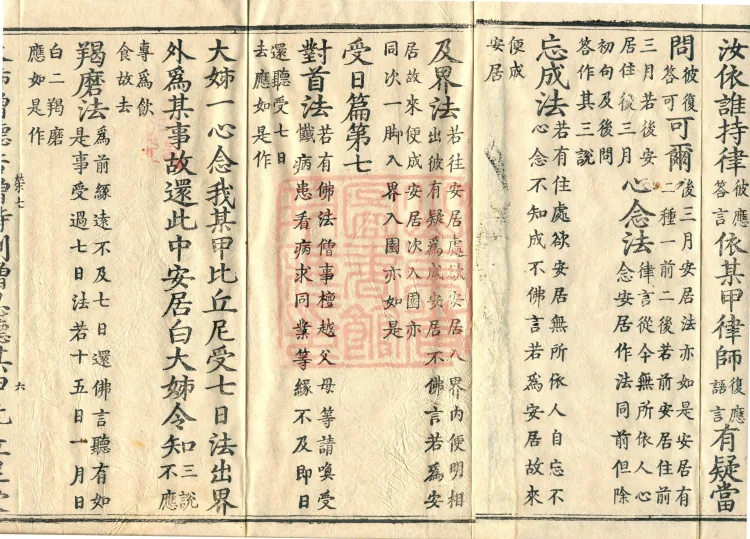 汝依誰持律彼應答言依某甲律師復應語言有疑當
問彼復答可可爾後三月安居法亦如是安居有二種一前二後若前安居住前
三月若後安居住後三月心念法律言從今無所依人心念安居作法同前但除
初句及後問答作其三說
忘成法若有住處欲安居無所依人自忘不心念不知成不佛言若爲安居故來
便成安居
及界法若往安居處欲安居入界內便明相出彼有疑爲成安居不佛言若爲安
居故來便成安居次入園亦同次一脚入界入園亦如是
受日篇第七
對首法若有佛法僧事檀越父母等請喚受懺病患看病求同業等緣不及即日
還聽受七日去應如是作
大姊一心念我某甲比丘尼受七日法出界
外爲某事故還此中安居白大姊令知三說不應
專爲飲食故去
羯磨法爲前緣遠不及七日還佛言聽有如是事受過七日法若十五日一月日
白二羯磨應如是作
榮七 六